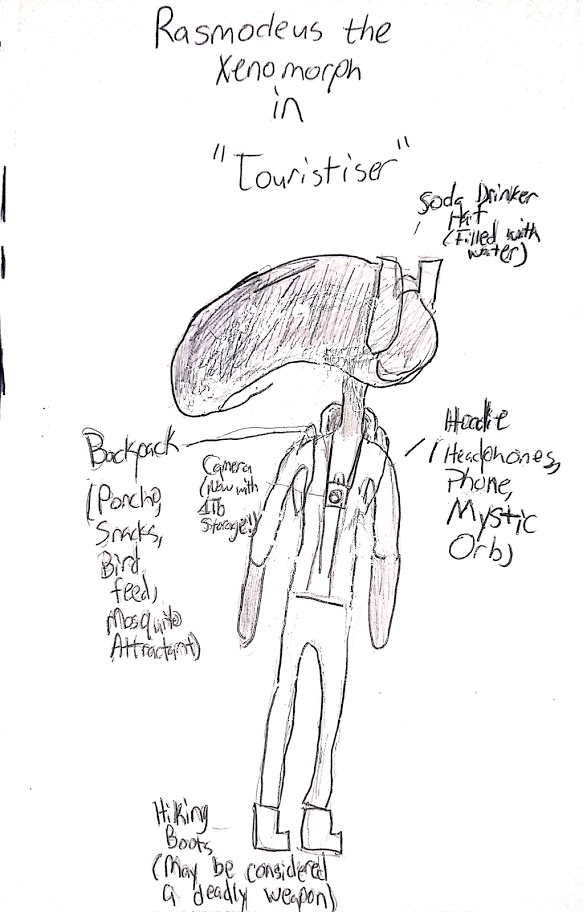 Rasmodeus the
Xenomorph
in
"Touristiser"
Soda Drinker
Hat
(Filled with
water)
Backpack
(Poncho,
Snacks,
Bird
feed,
Mosquito
Attractant)
Camera
(Now with
1Tb
Storage!)
Hoodie
(Headphones,
Phone,
Mystic
Orb)
Hiking
Boots
(May be considered
a deadly weapon)